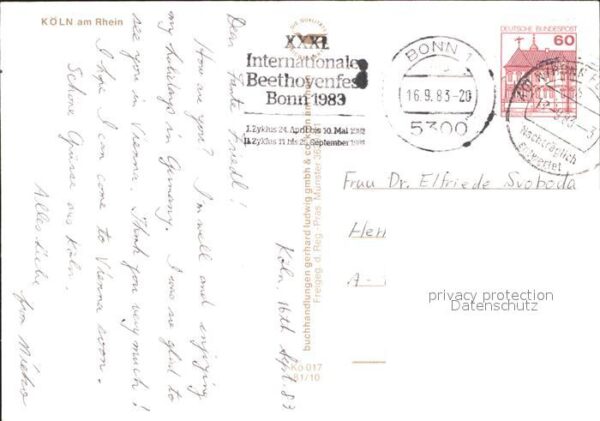 KÖLN am Rhein
Köln, 16th Sept. 83
Dear Tante Friedl!
How are you? I'm well and enjoying
my holidays in Germany. I was so glad to
see you in Vienna. Thank you very much!
I hope I can come to Vienna soon.
Schöne Grüsse aus Köln.
Alles Liebe
from
DIE
buchhandlungen gerhard ludwig gmbh & co köln am
Freigeg. d. Reg.-Präs. Münster 36
Kö 017
81/10
XXXI.
Internationales
Beethovenfest
Bonn 1983
I. Zyklus 24. April bis 10. Mai 1983
II. Zyklus 11. bis 25. September 1983
BONN 1
16.9.83-20
5300
DEUTSCHE BUNDESPOST
60
Nachträglich
entwertet
Frau Dr. Elfriede Svoboda
Her
A-
privacy protection
Datenschutz